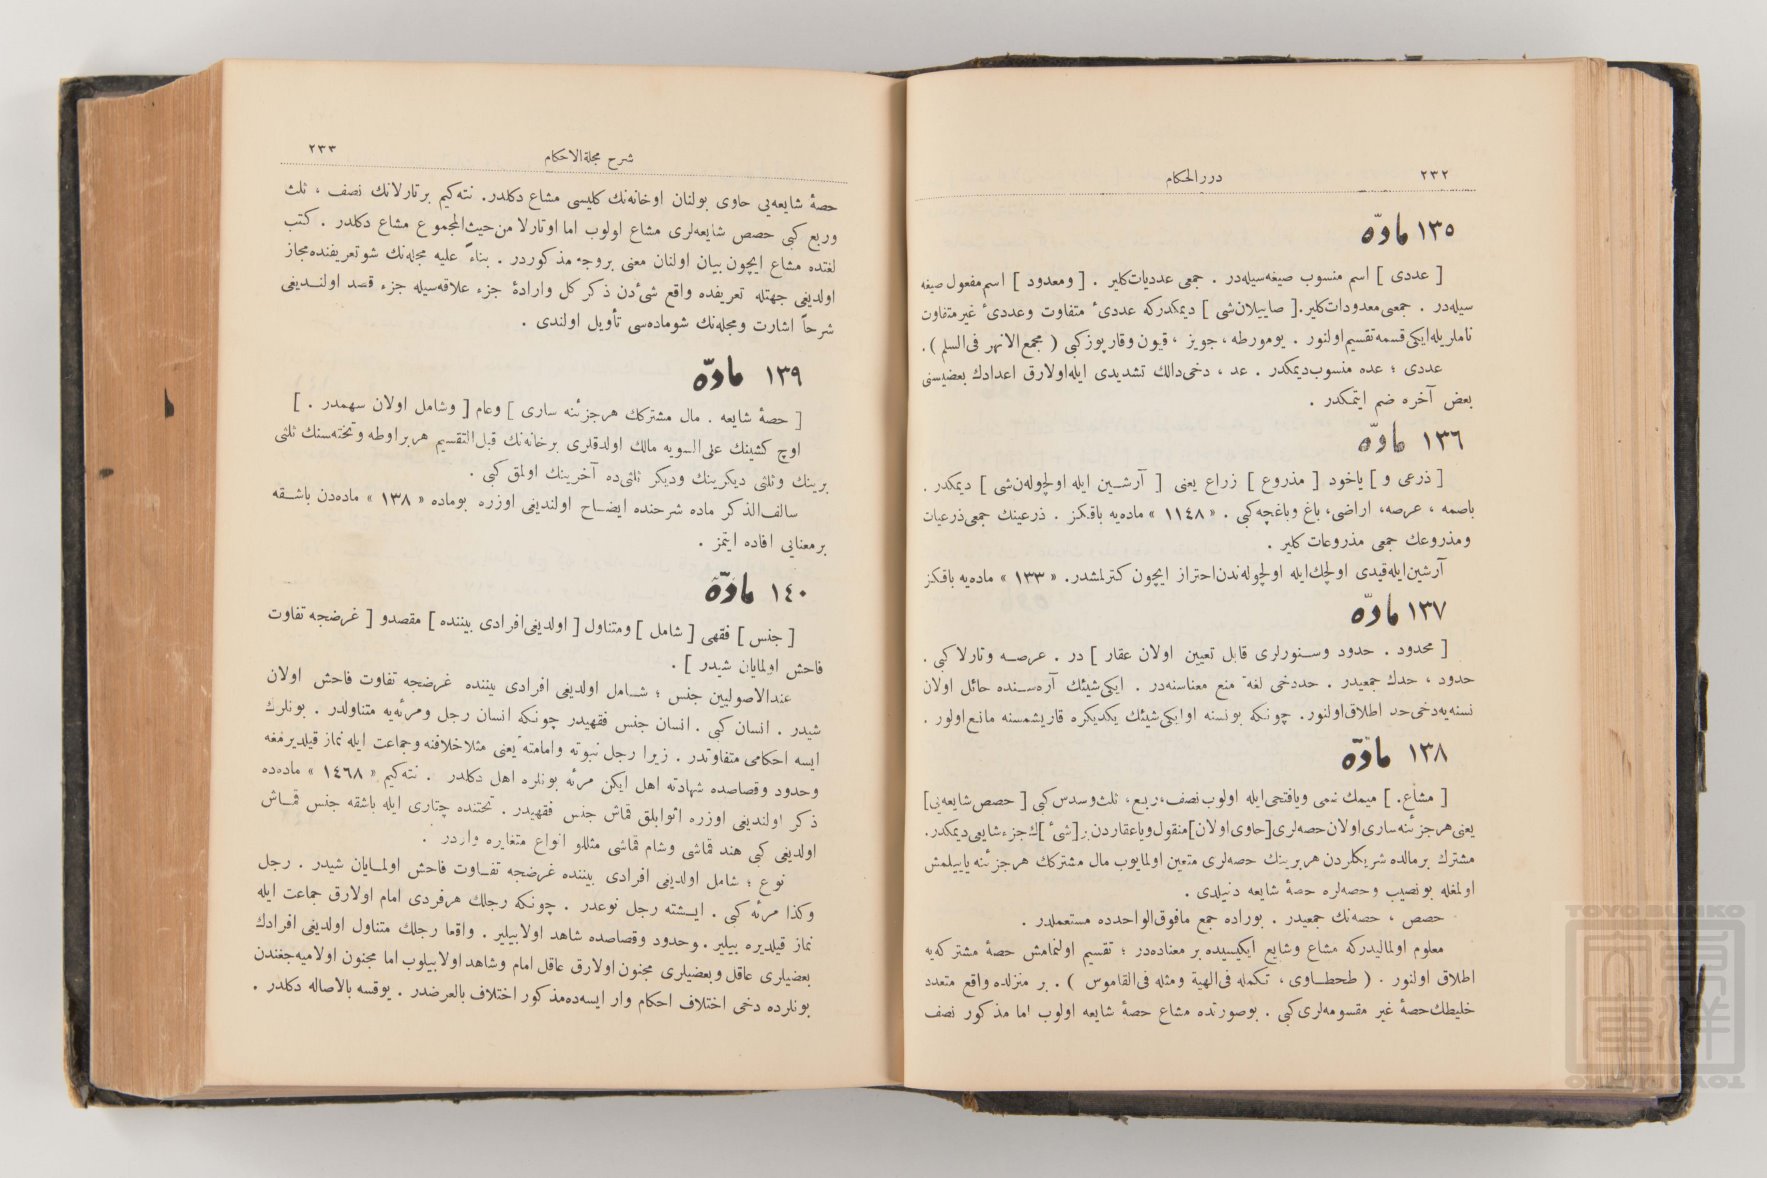 ٢٣٢
دررالحكام
١٣٥ مادّه
[ عددى ] اسم منسوب صيغه‌سيله‌در . جمعى عدديات‌كلير . [ ومعدود ] اسم‌مفعول صيغه
سيله‌در . جمعى‌معدودات‌كلير.[ صاييلان‌شى ] ديمكدركه عددىٔ متفاوت وعددىٔ غيرمتفاوت
ناملريله‌ايكى‌قسمه‌تقسيم‌اولنور . يومورطه ، جويز ، قيون وقارپوزكبى ( مجمع‌الانهر فى‌السلم ).
عددى ؛ عده منسوب‌ديمكدر . عد ، دخى‌دالك تشديدى ايله‌اولارق اعدادك بعضيسنى
بعض آخره ضم ايتمكدر .
١٣٦ مادّه
[ ذرعى و ] ياخود [ مذروع ] زراع يعنى [ آرشــين ايله اولچوله‌ن‌شى ] ديمكدر .
باصمه ، عرصه، اراضى، باغ وباغچه‌كبى . « ١١٤٨ » ماده‌يه باقكز . ذرعينك جمعى‌ذرعيات
ومذروعك جمعى مذروعات كلير .
آرشين‌ايله‌قيدى اولچك‌ايله اولچوله‌ندن‌احتراز ايچون كتيرلمشدر. « ١٣٣ » ماده‌يه باقكز
١٣٧ مادّه
[ محدود . حدود وســنورلرى قابل تعيين اولان عقار ] در . عرصــه وتارلا كبى .
حدود ، حدك جمعيدر . حددخى لغةً منع معناسنه‌در . ايكى‌شيئك آره‌ســنده حائل اولان
نسنه‌يه‌دخى‌حد اطلاق‌اولنور. چونكه بونسنه اوايكى‌شيئك يكديكره قاريشمسنه مانع‌اولور .
١٣٨ مادّه
[ مشاع. ] ميمك ضمى وياقتحى‌ايله اولوب نصف،ربع، ثلث‌وسدس‌كبى [ حصص‌شايعه‌يى]
يعنى‌هرجزئنه‌سارى‌اولان‌حصه‌لرى[حاوى‌اولان]منقول‌وياعقاردن‌بر[شىٔ]ك‌جزء‌شايعى‌ديمكدر.
مشترك برمالده شريكلردن هربرينك حصه‌لرى متعين اولمايوب مال مشتركك هرجزئنه ياييلمش
اولمغله بونصيب وحصه‌لره حصهٔ شايعه دنيلدى .
حصص ، حصه‌نك جمعيدر . بوراده جمع مافوق‌الواحدده مستعملدر .
معلوم اولماليدركه مشاع وشايع ايكيسيده بر معناده‌در ؛ تقسيم اولنمامش حصهٔ مشتركه‌يه
اطلاق اولنور . ( طحطــاوى ، تكمله فى‌الهبة ومثله فى‌القاموس ) . بر منزلده واقع متعدد
خليطك‌حصهٔ غير مقسومه‌لرى‌كبى . بوصورتده مشاع حصهٔ شايعه اولوب اما مذكور نصف
شرح مجلةالاحكام
٢٣٣
حصهٔ شايعه‌يى حاوى بولنان اوخانه‌نك كليسى مشاع دكلدر. نته‌كيم برتارلانك نصف ، ثلث
وربع كبى حصص شايعه‌لرى مشاع اولوب اما اوتارلا من‌حيث‌المجموع مشاع دكلدر . كتب
لغتده مشاع ايچون بيان اولنان معنى بروجه مذكوردر . بناءً عليه مجله‌نك شوتعريفنده‌مجاز
اولديغى جهتله تعريفده واقع شىٔ‌دن ذكر كل وارادهٔ جزء علاقه‌سيله جزء قصد اولنــديغى
شرحاً اشارت ومجله‌نك شوماده‌سى تأويل اولندى .
١٣٩ مادّه
[ حصهٔ شايعه . مال مشتركك هرجزئنه سارى ] وعام [ وشامل اولان سهمدر . ]
اوچ كشينك على‌السويه مالك اولدقلرى برخانه‌نك قبل‌التقسيم هربراوطه وتخته‌سنك ثلثى
برينك وثلثى ديكرينك وديكر ثلثى‌ده آخرينك اولمق كبى .
سالف‌الذكر ماده شرحنده ايضــاح اولنديغى اوزره بوماده « ١٣٨ » ماده‌دن باشــقه
برمعنايى افاده ايتمز .
١٤٠ مادّه
[ جنس ] فقهى [ شامل ] ومتناول [ اولديغى‌افرادى بيننده ] مقصدو [ غرضجه تفاوت
فاحش اولمايان شيدر ] .
عندالاصوليين جنس ؛ شــامل اولديغى افرادى بيننده غرضجه تفاوت فاحش اولان
شيدر . انسان كبى . انسان جنس فقهيدر چونكه انسان رجل ومرئه‌يه متناولدر . بونلرك
ايسه احكامى متفاوتدر . زيرا رجل نبوته وامامته يعنى مثلاخلافته وجماعت ايله نماز قيلديرمغه
وحدود وقصاصده شهادته اهل ايكن مرئه بونلره اهل دكلدر . نته‌كيم « ١٤٦٨ » ماده‌ده
ذكر اولنديغى اوزره اثوابلق قماش جنس فقهيدر . تحتنده چتارى ايله باشقه جنس قمــاش
اولديغى كبى هند قماشى وشام قماشى مثللو انواع متغايره واردر .
نوع ؛ شامل اولديغى افرادى بيننده غرضجه تفــاوت فاحش اولمــايان شيدر . رجل
وكذا مرئه كبى . ايــشته رجل نوعدر . چونكه رجلك هرفردى امام اولارق جماعت ايله
نماز قيلديره بيلير . وحدود وقصاصده شاهد اولابيلير . واقعا رجلك متناول اولديغى افرادك
بعضيلرى عاقل وبعضيلرى مجنون اولارق عاقل امام وشاهد اولابيلوب اما مجنون اولاميه‌جغندن
بونلرده دخى اختلاف احكام وار ايسه‌ده‌مذكور اختلاف بالعرضدر . يوقسه بالاصاله دكلدر .
TOYO BUNKO